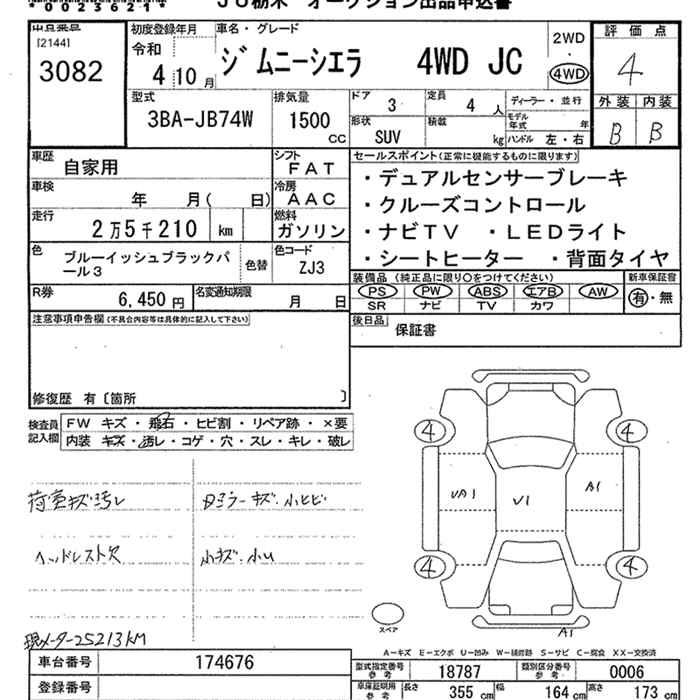 *00023621*
JU栃木 オークション出品申込書
出品番号
[2144]
3082
初度登録年月
令和
4年10月
車名・グレード
ジムニーシエラ 4WD JC
2WD
・
4WD
評価点
4
外装 内装
B B
型式
3BA-JB74W
排気量
1500
CC
ドア 3
定員 4 人
ディーラー・並行
形状
SUV
積載
kg
モデル年式 年
ハンドル 左・右
車歴 自家用
シフト FAT
車検 年 月( 日)
冷房 AAC
走行 2万5千210 km
燃料 ガソリン
色 ブルーイッシュブラックパール3
色替
色コード ZJ3
R券 6,450円
名変通知期限 月 日
セールスポイント(正常に機能するものに限ります)
・デュアルセンサーブレーキ
・クルーズコントロール
・ナビTV ・LEDライト
・シートヒーター ・背面タイヤ
装備品(純正品に限り○をつけてください)
新車保証書
PS PW ABS エアB AW
SR ナビ TV カワ
有・無
後日品 保証書
注意事項申告欄(不具合内容等は具体的に記入して下さい)
修復歴 有〔箇所 〕
検査員記入欄
FW キズ・飛石・ヒビ割・リペア跡・×要
内装 キズ・汚レ・コゲ・穴・スレ・キレ・破レ
荷室キズ汚レ
ミラーキズ.小ヒビ
ヘッドレスト欠
小キズ.小U
現メーター25213KM
4 4
UA1 U1 A1
4 4
スペア
A1
A-キズ E-エクボ U-凹み W-補修跡 S-サビ C-腐食 XX-交換済
車台番号 174676
登録番号
型式指定番号 参考 18787
類別区分番号 参考 0006
車庫証明用 参考
長さ 355 cm
幅 164 cm
高さ 173 cm